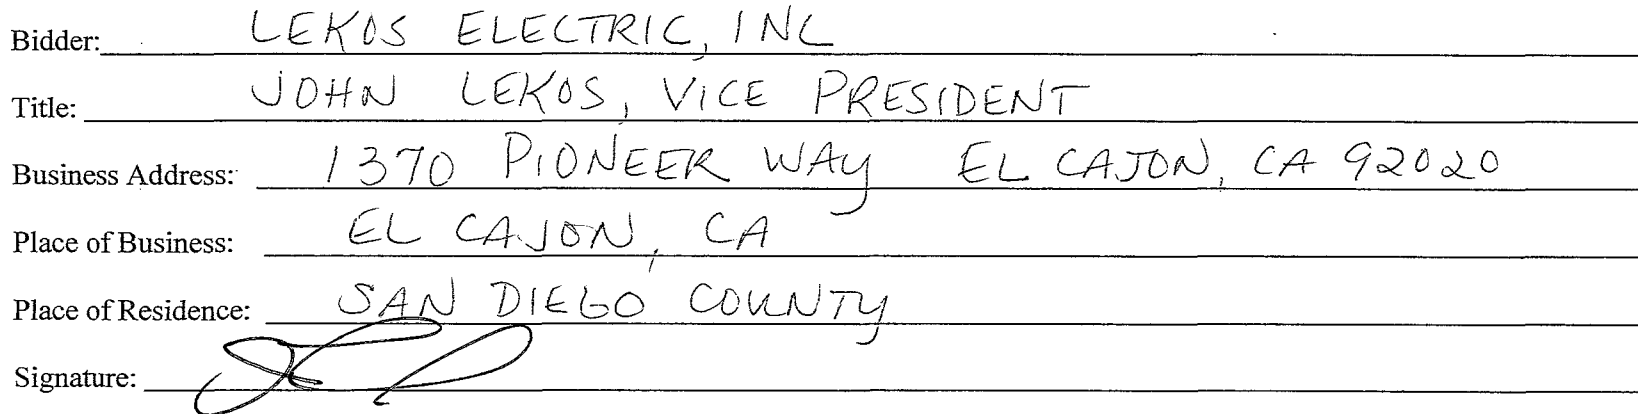 Bidder: LEKOS ELECTRIC, INC
Title: JOHN LEKOS, VICE PRESIDENT
Business Address: 1370 PIONEER WAY EL CAJON, CA 92020
Place of Business: EL CAJON, CA
Place of Residence: SAN DIEGO COUNTY
Signature: